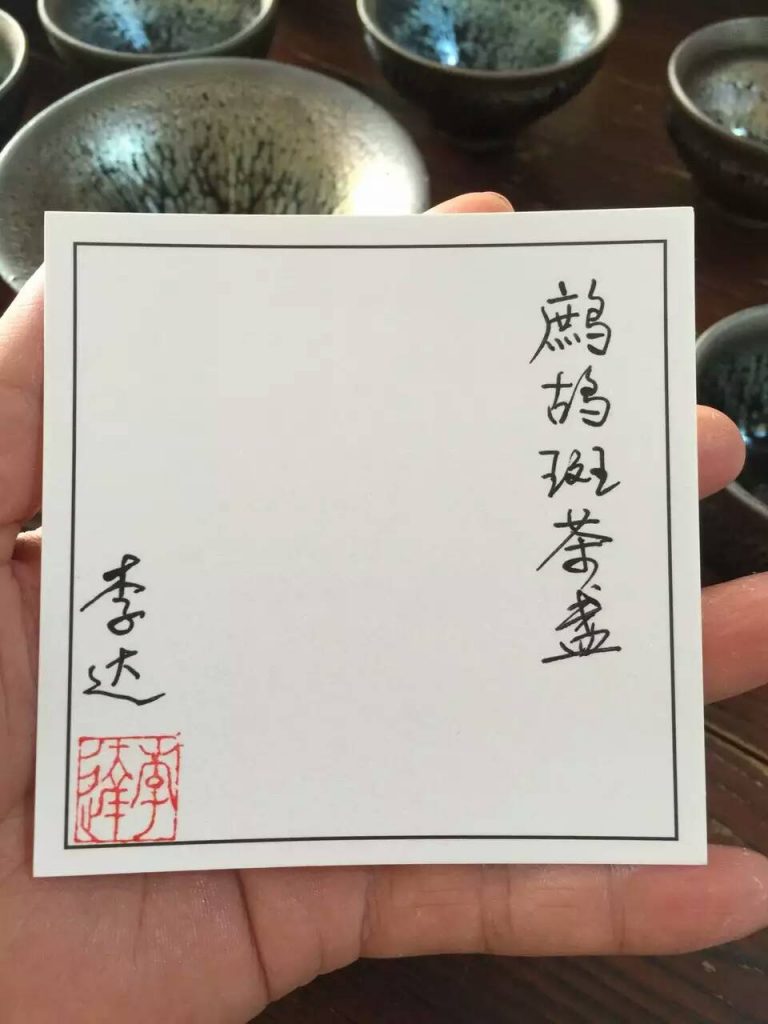 鹧鸪斑茶盏
李达
李達